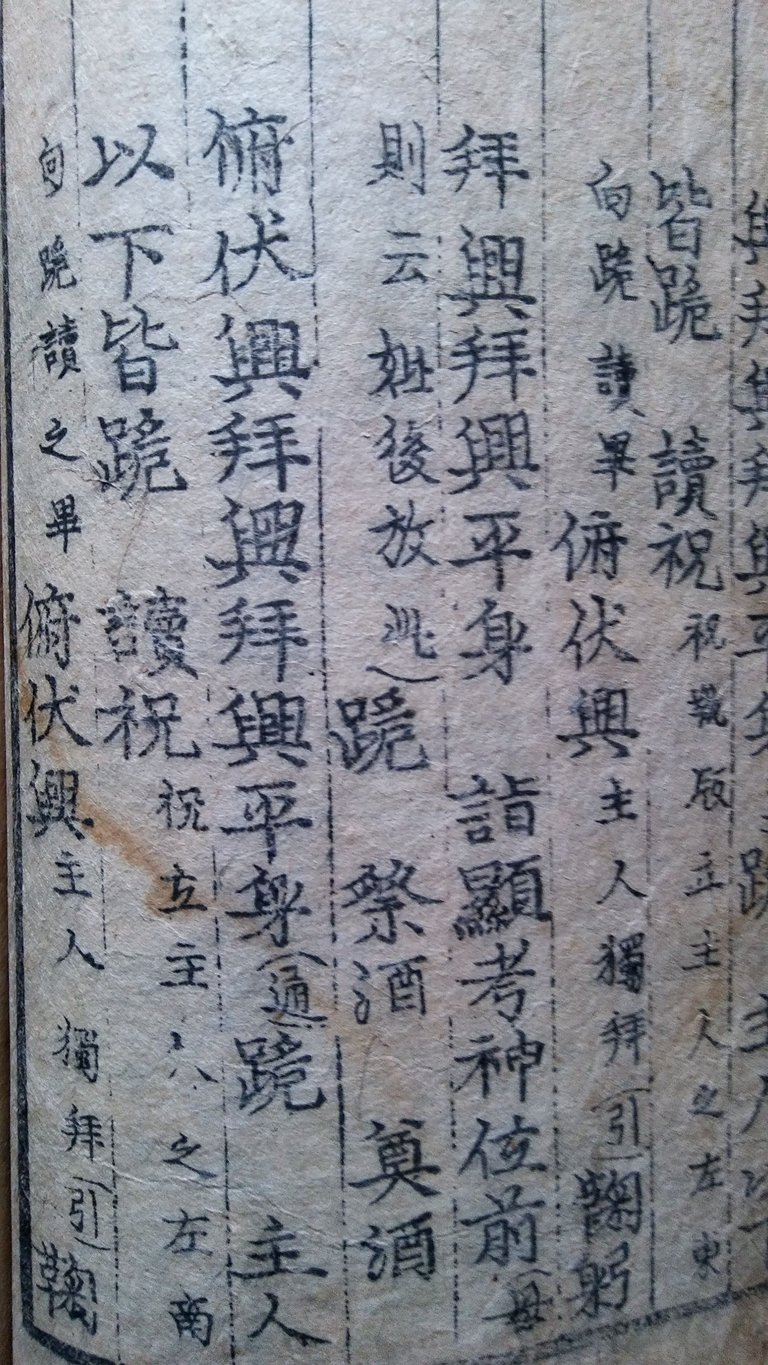 興拜興拜興平身 跪 主人以下
皆跪 讀祝 祝執版立主人之左東
向跪讀畢 俯伏興 主人獨拜(引)鞠躬
拜興拜興平身 詣顯考神位前(母
則云妣後放此)跪 祭酒 奠酒
俯伏興拜興拜興平身(通)跪 主人
以下皆跪 讀祝 祝立主人之左南
向跪讀之畢 俯伏興 主人獨拜(引)鞠